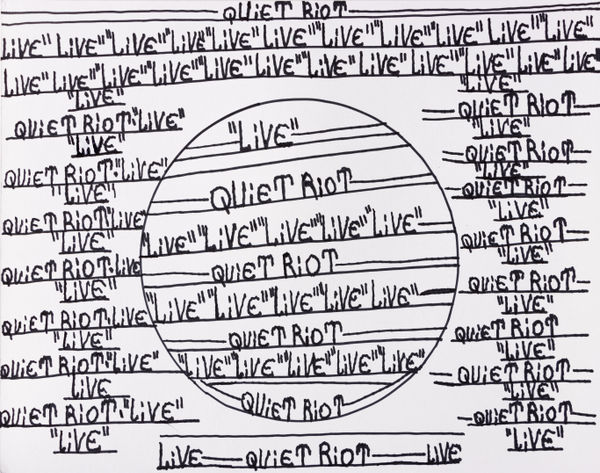 QUiET RiOT
LiVE" LiVE" "LiVE" "LiVE" "LiVE" "LiVE" "LiVE" "LiVE" "LiVE" "LiVE" "LiVE"
LiVE" LiVE" "LiVE" "LiVE" "LiVE" "LiVE" "LiVE" "LiVE" "LiVE" "LiVE" "LiVE" "LiVE"
"LiVE"
QUiET RiOT:"LiVE"
"LiVE"
QUiET RiOT:"LiVE"
"LiVE"
QUiET RiOT:"LiVE"
"LiVE"
QUiET RiOT:"LiVE
"LiVE"
QUiET RiOT:"LiVE
"LiVE"
QUiET RiOT:"LiVE"
LiVE
QUiET RiOT:"LiVE"
"LiVE"
"LiVE"
QUiET RiOT
"LiVE" "LiVE" "LiVE" "LiVE" "LiVE"
QUiET RiOT
"LiVE" "LiVE" "LiVE" "LiVE" LiVE"
QUiET RiOT
"LiVE" "LiVE" "LiVE" "LiVE" "LiVE"
QUiET RiOT
"LiVE"
QUiET RiOT
"LiVE"
QUiET RiOT
"LiVE"
QUiET RiOT
"LiVE"
QUiET RiOT
"LiVE"
QUiET RiOT
"LiVE"
QUiET RiOT
"LiVE"
QUiET RiOT
"LiVE"
QUiET RiOT
"LiVE"
LiVE QUiET RiOT LiVE